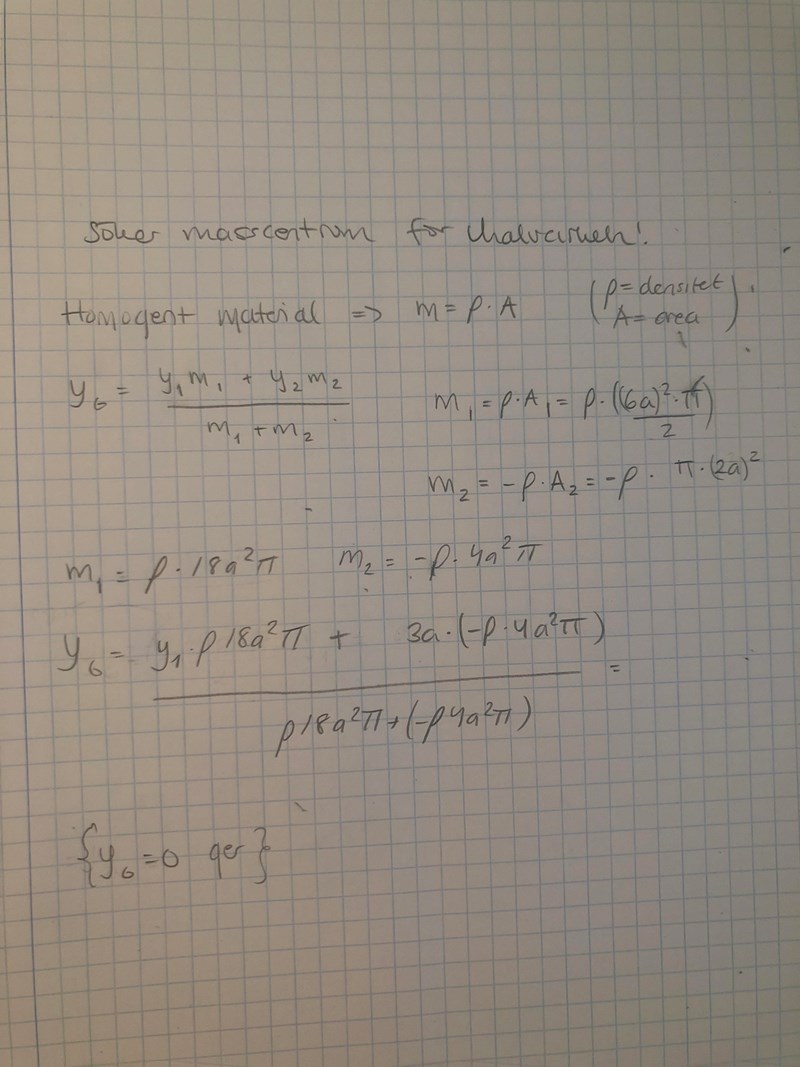 Söker masscentrum för halvcirkeln!
Homogent material => m = ρ · A (ρ = densitet, A = area).
y_G = (y₁m₁ + y₂m₂) / (m₁ + m₂)
m₁ = ρ·A₁ = ρ · ((6a)²·π / 2)
m₂ = -ρ·A₂ = -ρ · π·(2a)²
m₁ = ρ·18a²π m₂ = -ρ·4a²π
y_G = (y₁·ρ18a²π + 3a·(-ρ·4a²π)) / (ρ18a²π+(-ρ4a²π)) =
{y_G = 0 ger}